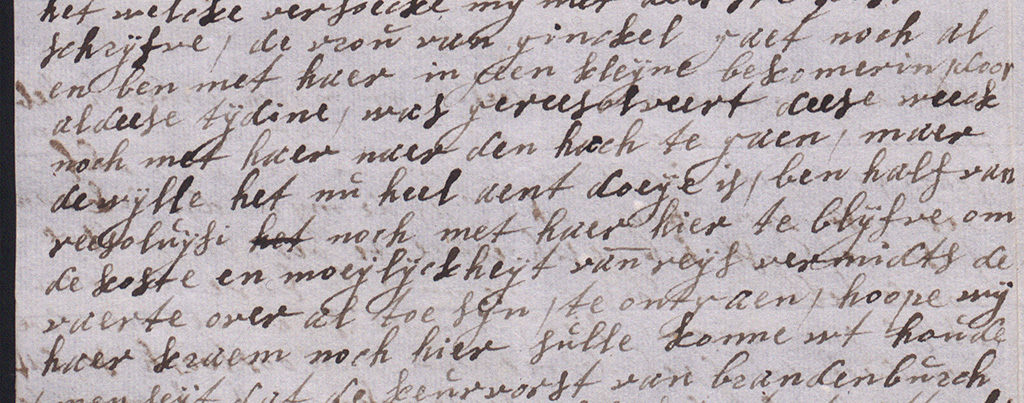 het welcke versoecke my met
schryfve / de vrou van ginckel gaet noch al
en ben met haer in geen kleyne bekomerin door
al deese tydine / was gereesolveert deese weeck
noch met haer naer den hach te gaen / maer
dewylle het nu heel aent doeye is / ben half van
reesoluysi het noch met haer hier te blyfve om
de koste en moeylyckheyt van reys vermidts de
vaerte over al toe syn / te ontgaen / hoope wy
haer kraem noch hier sulle konne wt houde
men seyt dat de keurvorst van brandenburch